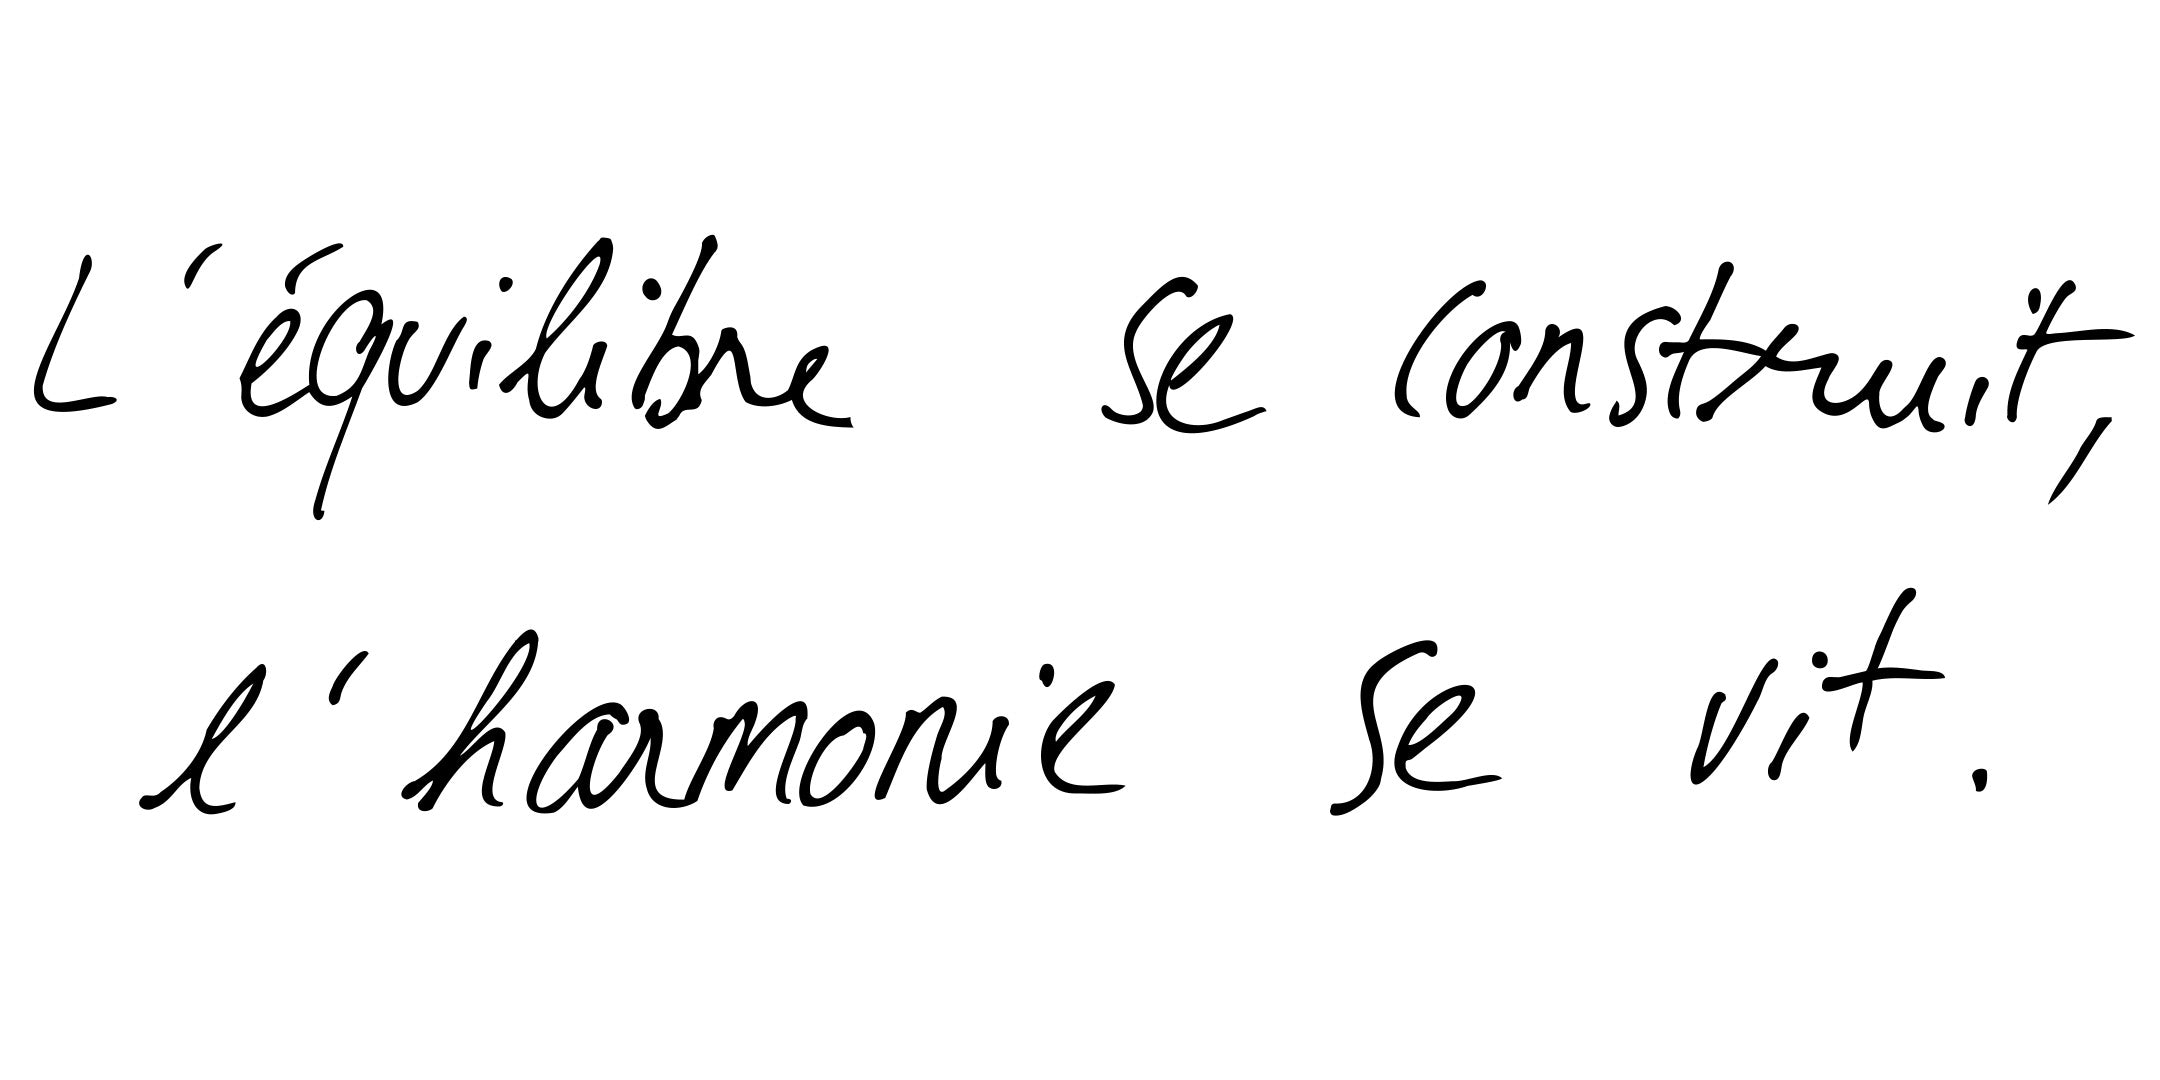 L'équilibre se construit,
l'harmonie se vit.